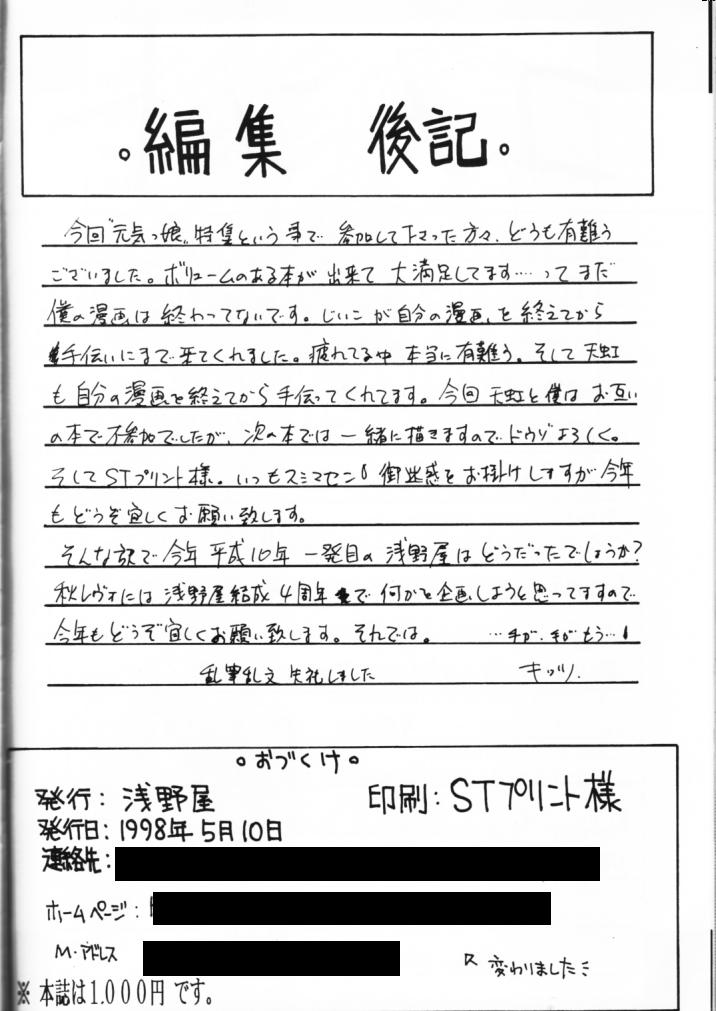 。編集 後記。
今回“元気っ娘〟特集という事で 参加して下さった方々、どうも有難う
ございました。ボリュームのある本が 出来て 大満足してます……って まだ
僕の漫画は 終わってないです。じいこ が自分の漫画、を 終えてから
手伝いにまで 来てくれました。疲れてる中 本当に有難う。そして 天虹
も 自分の漫画を終えてから 手伝ってくれてます。今回 天虹と僕は お互い
の本で不参加でしたが、次の本では 一緒に描きますので ドウゾ よろしく。
そして STプリント様。いつも スミマセン! 御迷惑を お掛けしますが 今年
も どうぞ 宜しく お願い致します。
そんな訳で 今年 平成10年 一発目の 浅野屋は どうだったでしょうか?
秋レヴォには 浅野屋結成 4周年 で 何かを企画しようと思ってますので
今年もどうぞ宜しくお願い致します。それでは。 …手が、手が もう…!
乱筆乱文 失礼しました キッツ。
。おづくけ。
発行: 浅野屋 印刷: STプリント様
発行日: 1998年 5月10日
連絡先:
ホームページ:
M・アドレス 変わりました
※ 本誌は1.000円 です。